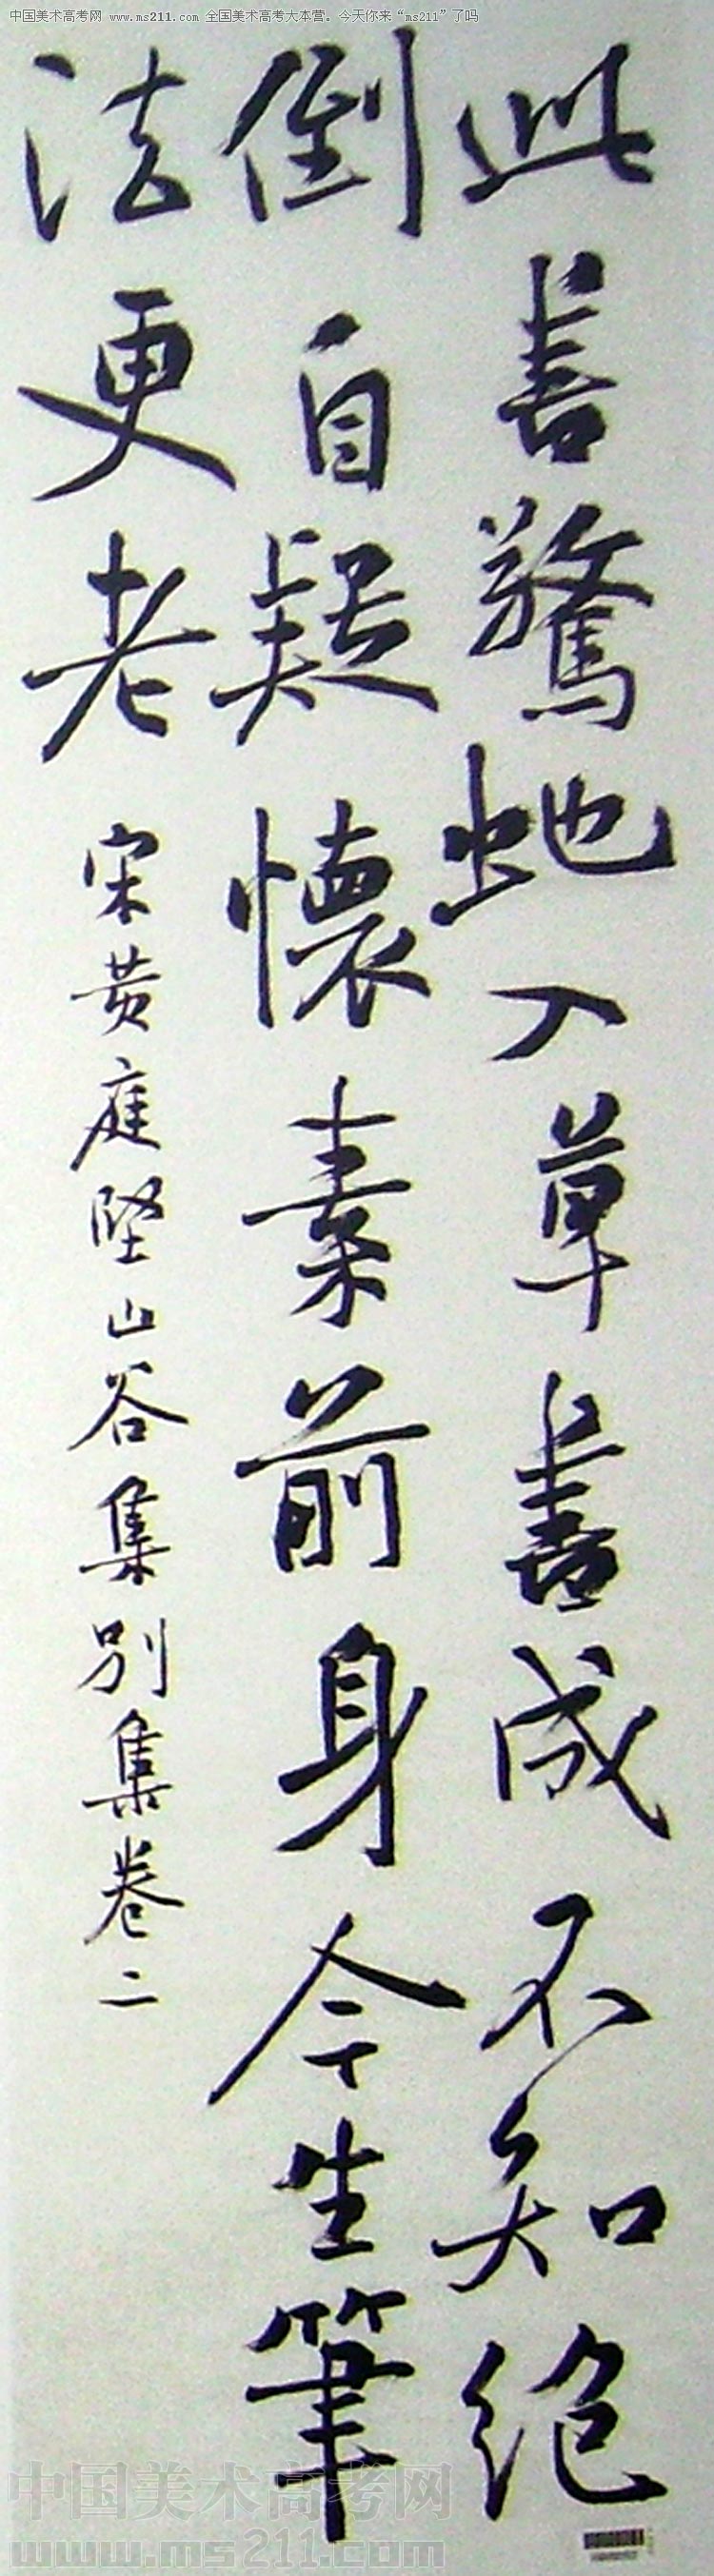 中国美术高考网 www.ms211.com 全国美术高考大本营。今天你来“ms211”了吗
此書驚蛇入草書成不知絕
倒自疑懷素前身今生筆
法更老 宋黄庭堅山谷集别集卷二
中国美术高考网
www.ms211.com